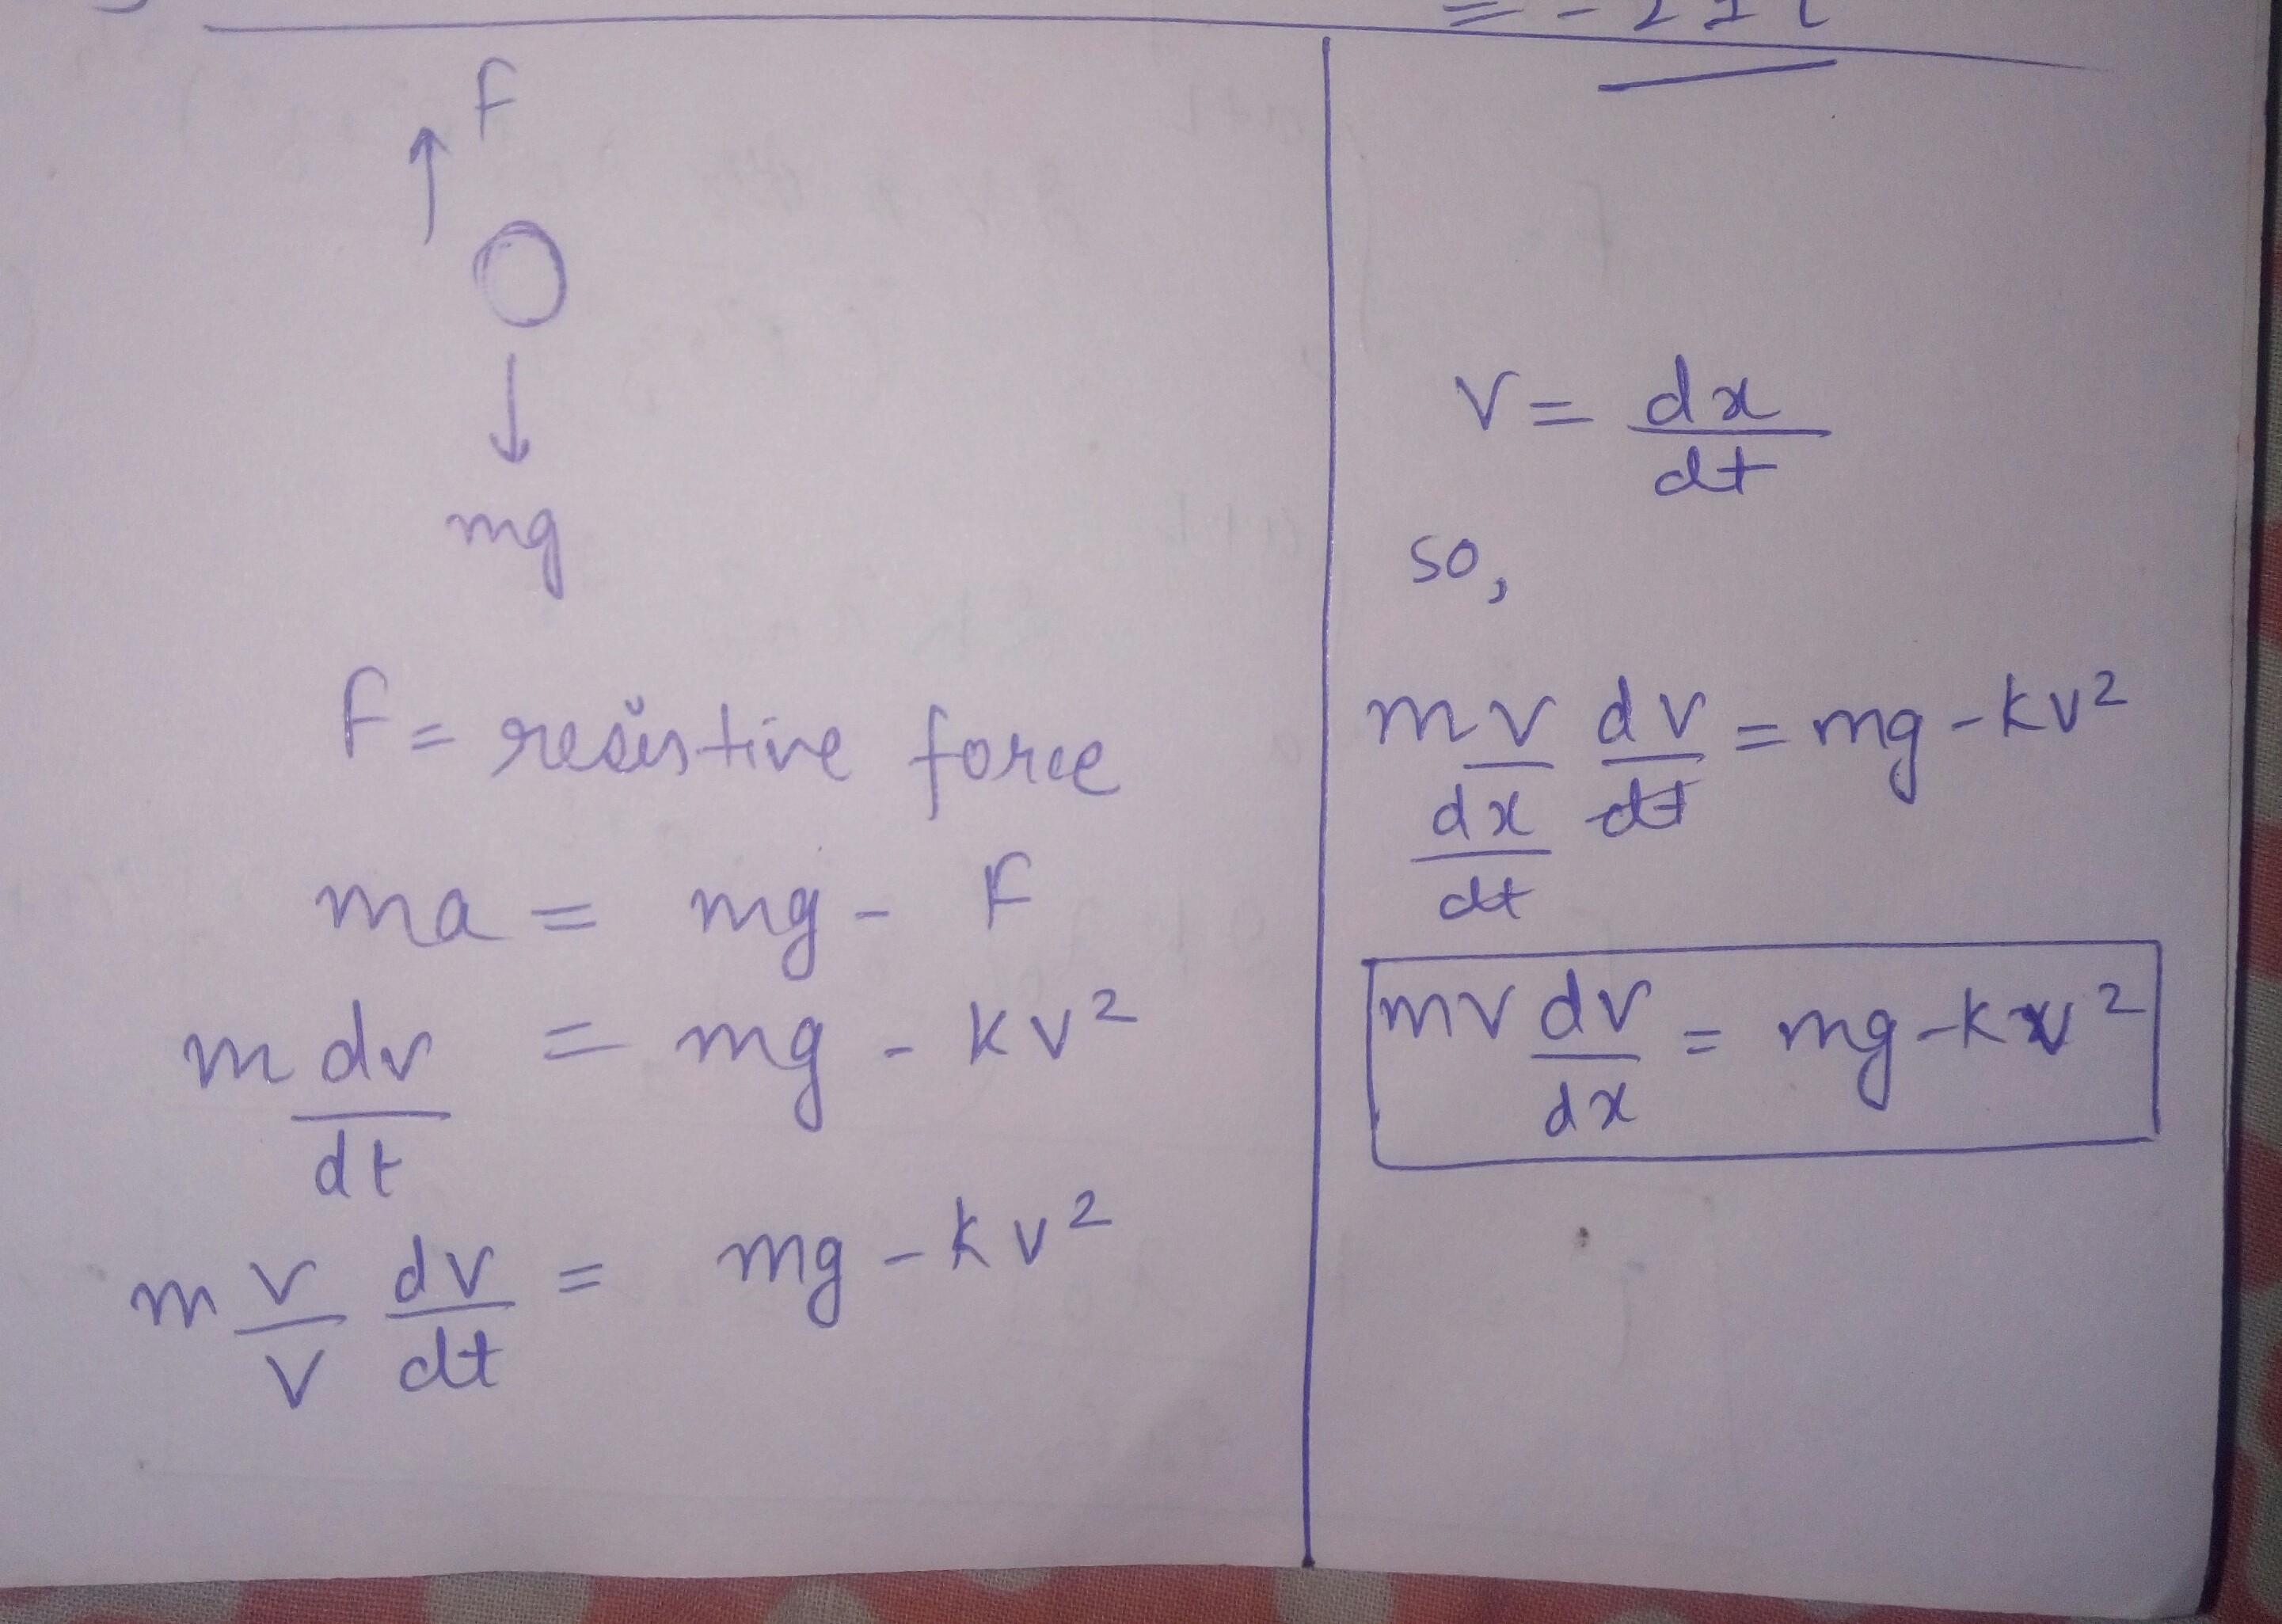 F
mg
F = resistive force
ma = mg - F
m dv/dt = mg - kv²
m v/v dv/dt = mg - kv²
v = dx/dt
so,
m v/(dx/dt) dv/dt = mg - kv²
mv dv/dx = mg - kv²